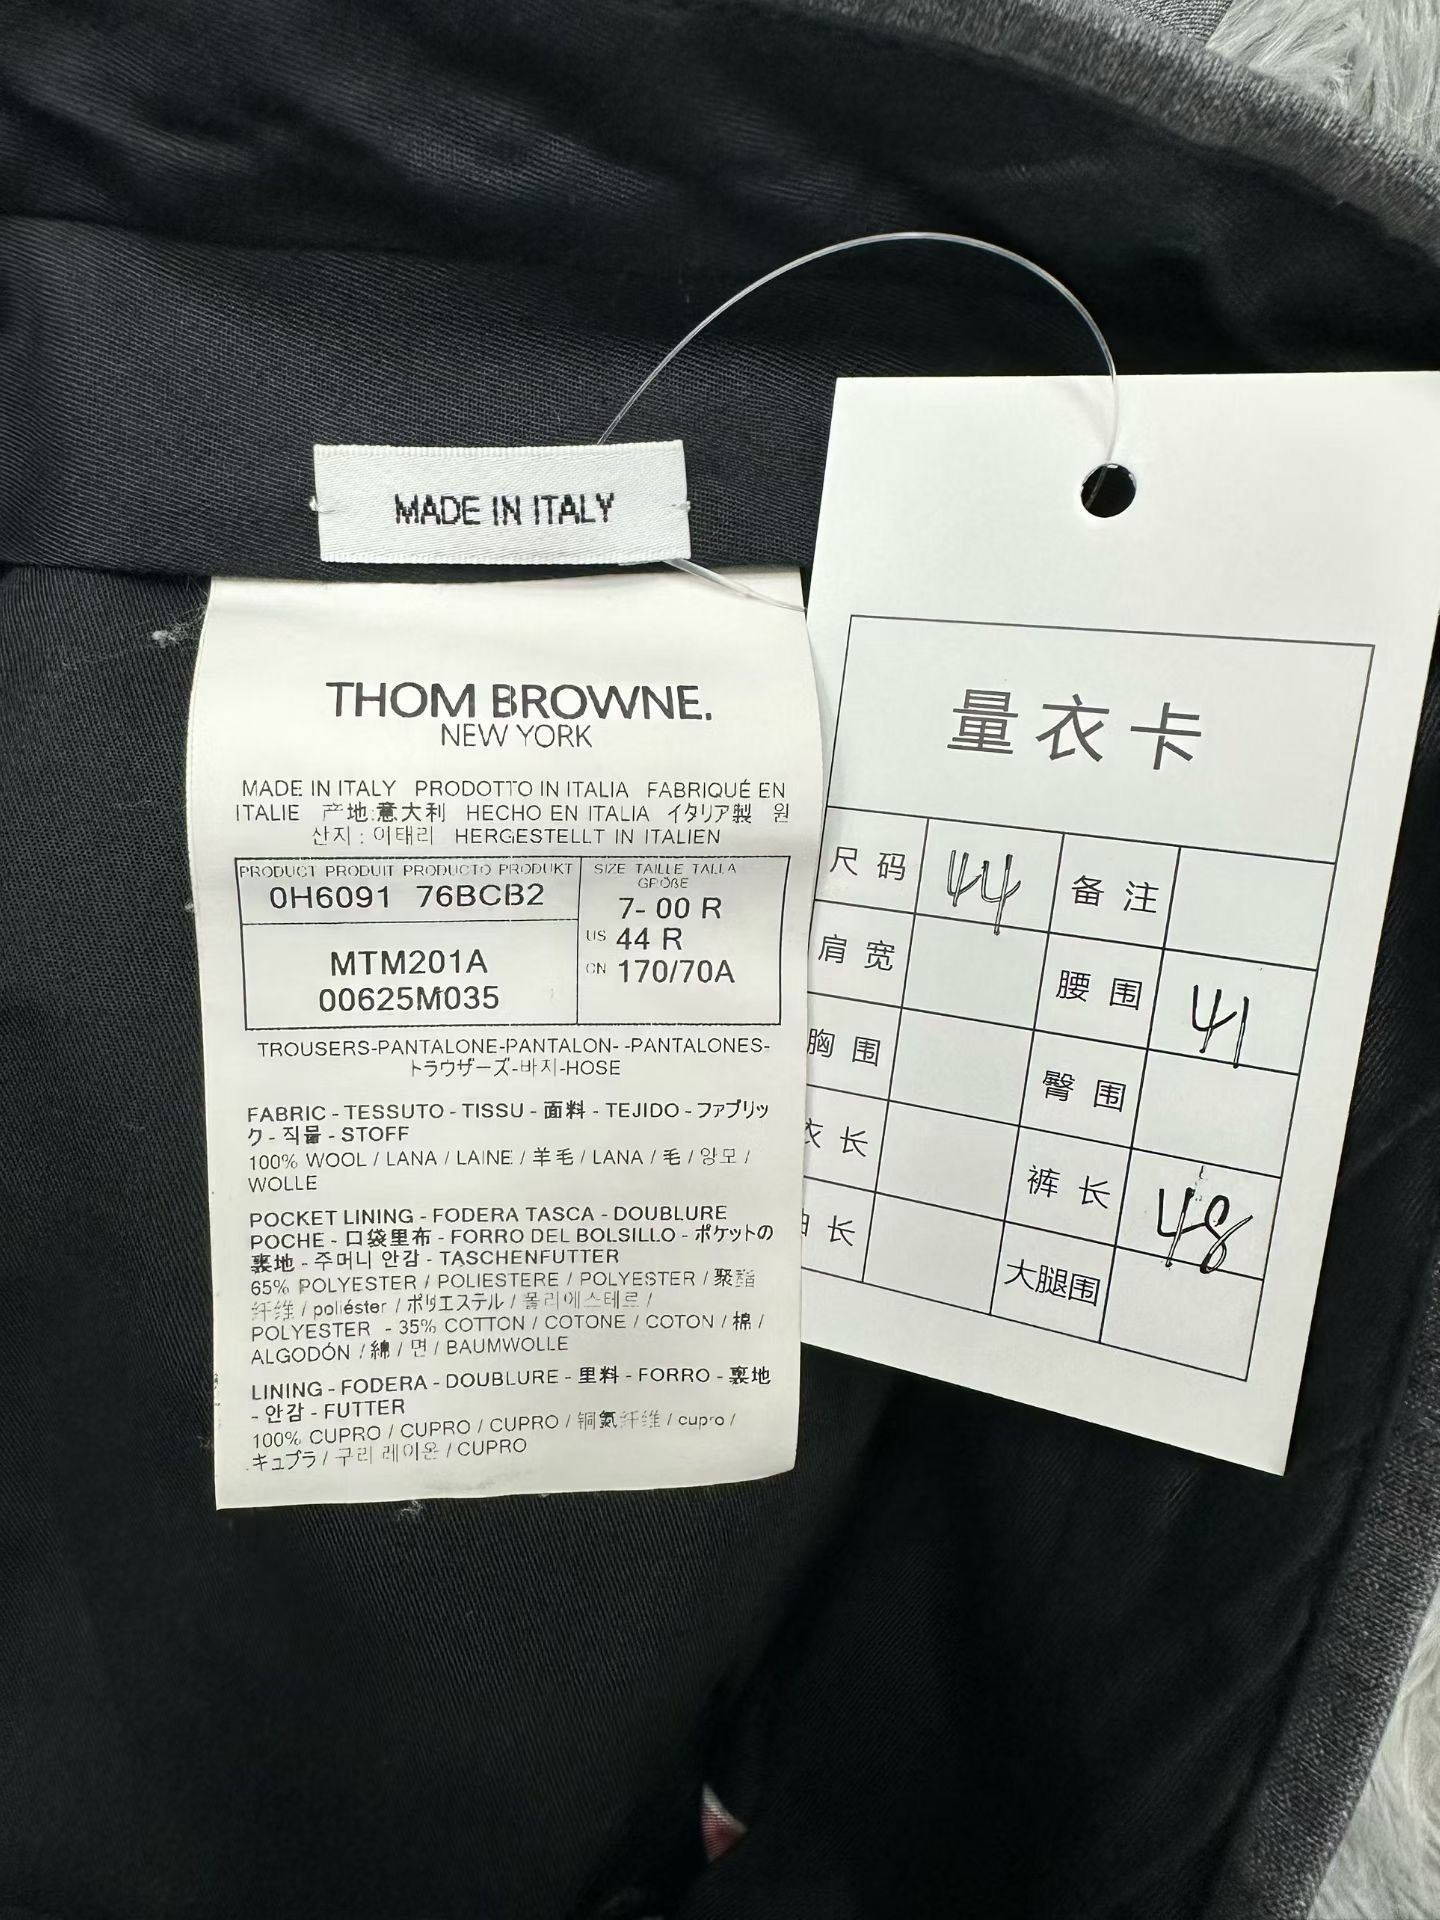 MADE IN ITALY
THOM BROWNE.
NEW YORK
MADE IN ITALY PRODOTTO IN ITALIA FABRIQUÉ EN
ITALIE 产地:意大利 HECHO EN ITALIA イタリア製 원
산지 : 이태리 HERGESTELLT IN ITALIEN
PRODUCT PRODUIT PRODUCTO PRODUKT
0H6091 76BCB2
MTM201A
00625M035
SIZE TAILLE TALLA
GRÖßE
7- 00 R
US 44 R
CN 170/70A
TROUSERS-PANTALONE-PANTALON- -PANTALONES-
トラウザーズ-바지-HOSE
FABRIC - TESSUTO - TISSU - 面料 - TEJIDO - ファブリッ
ク - 직물 - STOFF
100% WOOL / LANA / LAINE / 羊毛 / LANA / 毛 / 양모 /
WOLLE
POCKET LINING - FODERA TASCA - DOUBLURE
POCHE - 口袋里布 - FORRO DEL BOLSILLO - ポケットの
裏地 - 주머니 안감 - TASCHENFUTTER
65% POLYESTER / POLIESTERE / POLYESTER / 聚酯
纤维 / poliéster / ポリエステル / 폴리에스테르 /
POLYESTER - 35% COTTON / COTONE / COTON / 棉 /
ALGODÓN / 綿 / 면 / BAUMWOLLE
LINING - FODERA - DOUBLURE - 里料 - FORRO - 裏地
- 안감 - FUTTER
100% CUPRO / CUPRO / CUPRO / 铜氨纤维 / cupro /
キュプラ / 구리 레이온 / CUPRO
量衣卡
尺码 44 备注
肩宽 腰围 41
胸围 臀围
衣长 裤长 48
长 大腿围